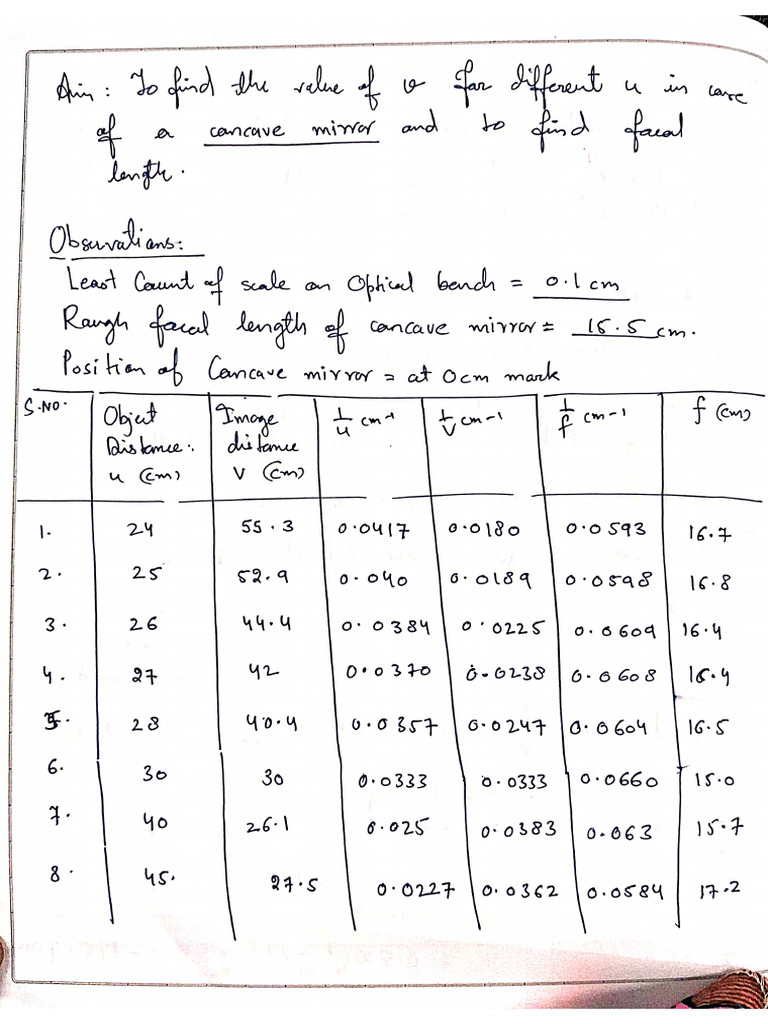 Aim: To find the value of v for different u in case
of a concave mirror and to find focal
length.
Observations:
Least Count of scale on Optical bench = 0.1 cm
Rough focal length of concave mirror = 15.5 cm.
Position of Concave mirror = at 0cm mark
S.NO. Object Distance: u (cm) Image distance v (cm) 1/u cm-1 1/v cm-1 1/f cm-1 f (cm)
1. 24 55.3 0.0417 0.0180 0.0593 16.7
2. 25 52.9 0.040 0.0189 0.0598 16.8
3. 26 44.4 0.0384 0.0225 0.0609 16.4
4. 27 42 0.0370 0.0238 0.0608 16.4
5. 28 40.4 0.0357 0.0247 0.0604 16.5
6. 30 30 0.0333 0.0333 0.0660 15.0
7. 40 26.1 0.025 0.0383 0.063 15.7
8. 45. 27.5 0.0227 0.0362 0.0584 17.2